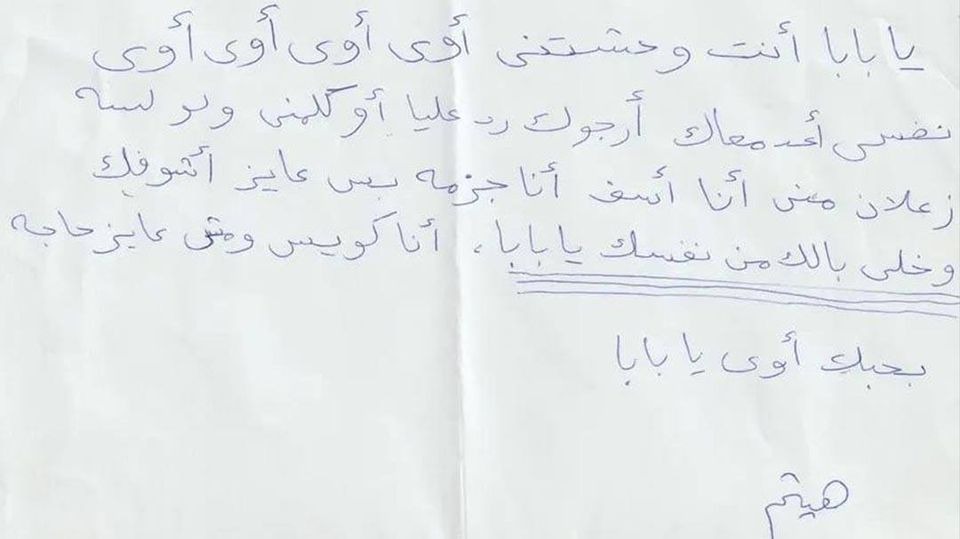 يا بابا أنت وحشتنى أوى أوى أوى أوى
نفسى أعد معاك أرجوك رد عليا أو كلمنى ولو لسه
زعلان منى أنا أسف أنا جزمه بس عايز أشوفك
وخلى بالك من نفسك يا بابا، أنا كويس ومش عايز حاجه
بحبك أوى يا بابا
هيثم